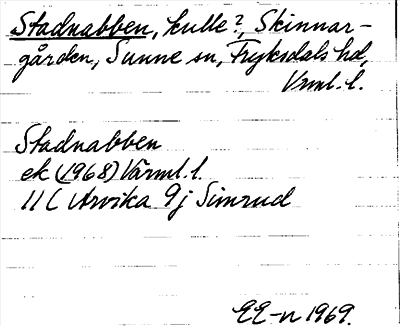 Stadnabben, kulle?, Skinnar-
gården, Sunne sn, Fryksdals hd,
Vrml. l.
Stadnabben
ek (1968) Värml. l.
11 C Arvika 9 j Simrud
EE-n 1969.